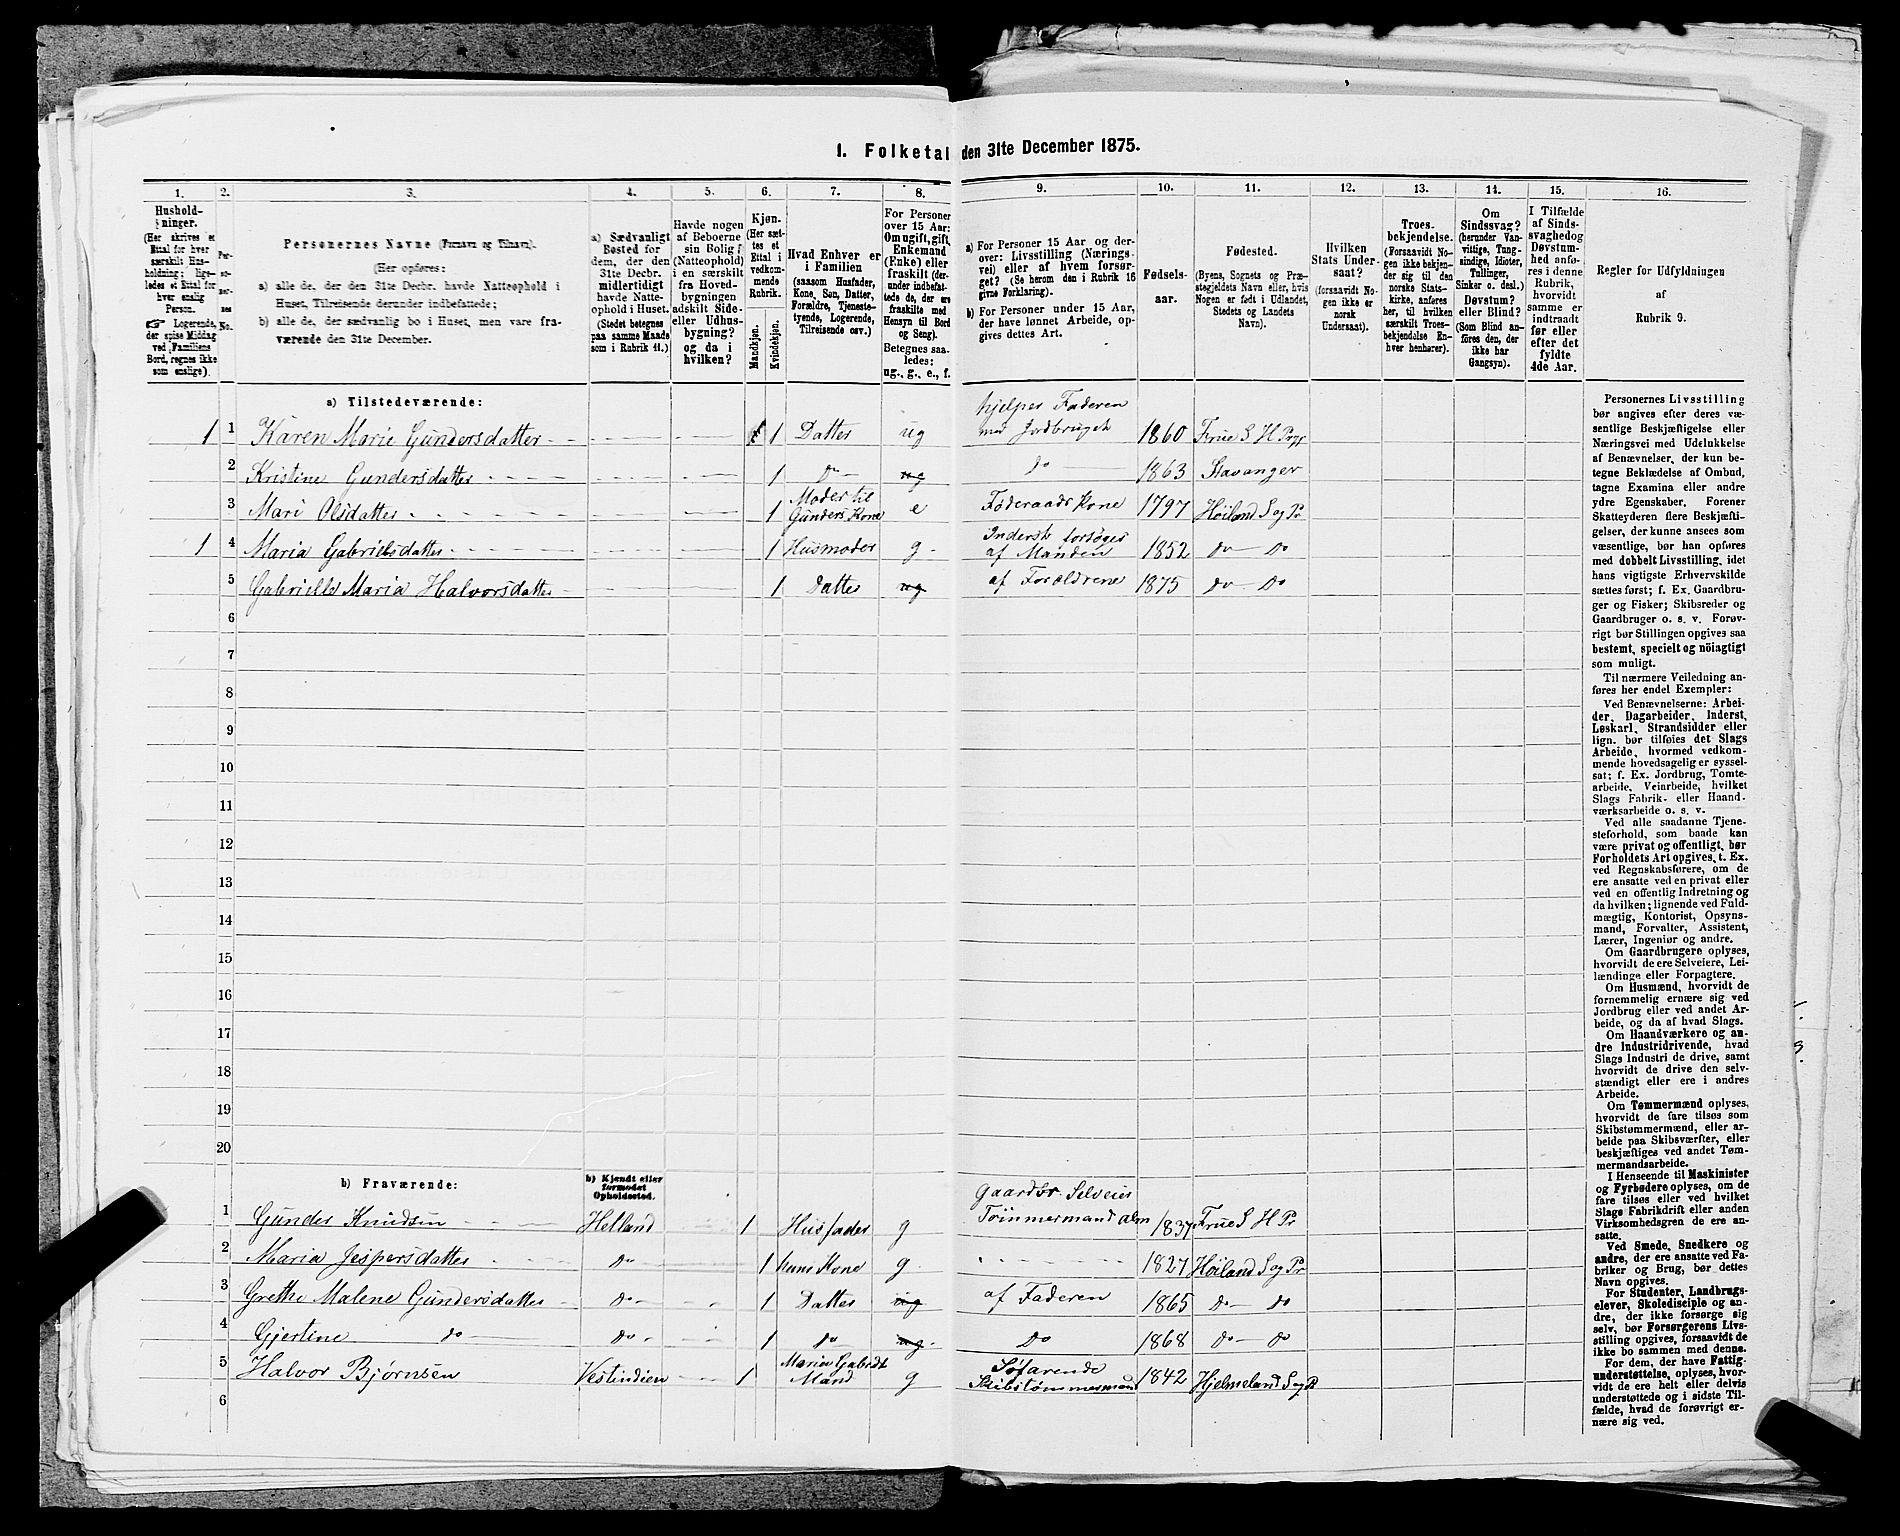 1. Folketal den 31te December 1875.
1. 2. 3. 4. 5. 6. 7. 8. 9. 10. 11. 12. 13. 14. 15. 16.
Hushold-
ninger.
(Her skrives et
Ettal for hver
særskilt Hus-
holdning; lige-
ledes et Ettal for
hver enslig
Person.
☞ Logerende,
der spise Middag
ved Familiens
Bord, regnes ikke
som enslige).
Per-
so-
ner-
nes
No.
Personernes Navne (Fornavn og Tilnavn).
(Her opføres:
a) alle de, der den 31te Decbr. havde Natteophold i
Huset, Tilreisende derunder indbefattede;
b) alle de, der sædvanlig bo i Huset, men vare fra-
værende den 31te December.
a) Sædvanligt
Bosted for
dem, der den
31te Decbr.
midlertidigt
havde Natte-
ophold i Huset.
(Stedet betegnes
paa samme Maade
som i Rubrik 11.)
Havde nogen
af Beboerne
sin Bolig
(Natteophold)
i en særskilt
fra Hoved-
bygningen
adskilt Side-
eller Udhus-
bygning?
og da i
hvilken?
Kjøn.
(Her sæt-
tes et
Ettal i
vedkom-
mende
Rubrik.
Mandkjøn.
Kvindekjøn.
Hvad Enhver er
i Familien
(saasom Husfader,
Kone, Søn, Datter,
Forældre, Tjeneste-
tyende, Logerende,
Tilreisende osv.)
For Personer
over 15 Aar:
Om ugift, gift,
Enkemand
(Enke) eller
fraskilt (der-
under indbefat-
tede de, der ere
fraskilte med
Hensyn til Bord
og Seng).
Betegnes saa-
ledes:
ug., g., e., f.
a) For Personer 15 Aar og der-
over: Livsstilling (Nærings-
vei) eller af hvem forsør-
get? (Se herom den i Rubrik 16
givne Forklaring).
b) For Personer under 15 Aar,
der have lønnet Arbeide, op-
gives dettes Art.
Fødsels-
aar.
Fødested.
(Byens, Sognets og Præ-
stegjeldets Navn, eller, hvis
Nogen er født i Udlandet,
Stedets og Landets
Navn).
Hvilken
Stats Under-
saat?
(forsaavidt No-
gen ikke er
norsk
Undersaat).
Troes-
bekjendelse.
(Forsaavidt No-
gen ikke bekjen-
der sig til den
norske Stats-
kirke, anføres
her, til hvilken
særskilt Troes-
bekjendelse En-
hver henhører).
Om
Sindssvag?
(herunder Van-
vittige, Tung-
sindige, Idioter,
Tullinger,
Sinker o. desl.)
Døvstum?
eller Blind?
(Som Blind an-
føres den, der
ikke har
Gangsyn).
I Tilfælde
af Sinds-
svaghed og
Døvstum-
hed anfø-
res i denne
Rubrik,
hvorvidt
samme er
indtraadt
før eller
efter det
fyldte
4de Aar.
Regler for Udfyldningen
af
Rubrik 9.
a) Tilstedeværende:
1 1 Karen Marie Gundersdatter 1 Datter ug hjelper Faderen med Jordbruget 1860 Frue S H Pr
2 Kristine Gundersdatter 1 Do ug Do 1863 Stavanger
3 Mari Olsdatter 1 Moder til Gunders Kone e Føderaads Kone 1797 Høiland S og Pr
1 4 Maria Gabrielsdatter 1 Husmoder g Inderst forsørges af Manden 1852 do do
5 Gabrielle Maria Halvorsdatter 1 Datter ug af Foreldrene 1875 do do
6
7
8
9
10
11
12
13
14
15
16
17
18
19
20
b) Fraværende:
b) Kjendt eller
formodet
Opholdssted.
1 Gunder Knudsen Helland 1 Husfader g Gaardbr. Selveier Tømmermand alm 1837 Frue S H Pr
2 Maria Jespersdatter Do 1 hans Kone g 1827 Høiland S og Pr
3 Grethe Malene Gundersdatter Do 1 Datter ug af Faderen 1865 do do
4 Gjertine do Do 1 do ug Do 1868 do do
5 Halvor Bjørnsen Vestindien 1 Maria Gabrdt Mand g Søfarende Skibstømmermand 1842 Hjelmeland S og P
6
Personernes Livsstilling
bør angives efter deres væ-
sentlige Beskjæftigelse eller
Næringsvei med Udelukkelse
af Benævnelser, der kun be-
tegne Beklædelse af Ombud,
tagne Examina eller andre
ydre Egenskaber. Forener
Skatteyderen flere Beskjæfti-
gelser, der kunne ansees som
væsentlige, bør han opføres
med dobbelt Livsstilling, idet
hans vigtigste Erhvervskilde
sættes først; f. Ex. Gaardbru-
ger og Fisker; Skibsreder og
Gaardbruger o. s. v. Forøv-
rigt bør Stillingen opgives saa
bestemt, specielt og nöiagtigt
som muligt.
Til nærmere Veiledning an-
føres her endel Exempler:
Ved Benævnelserne: Arbei-
der, Dagarbeider, Inderst,
Løskarl, Strandsidder eller
lign. bør tilføies det Slags
Arbeide, hvormed vedkom-
mende hovedsagelig er syssel-
sat; f. Ex. Jordbrug, Tomte-
arbeide, Veiarbeide, hvilket
Slags Fabrik- eller Haand-
værksarbeide o. s. v.
Ved alle saadanne Tjene-
steforhold, som baade kan
være privat og offentligt, bør
Forholdets Art opgives, t. Ex.
ved Regnskabsførere, om de
ere ansatte ved en privat eller
ved en offentlig Indretning og
da hvilken; lignende ved Fuld-
mægtig, Kontorist, Opsyns-
mand, Forvalter, Assistent,
Lærer, Ingeniør og andre.
Om Gaardbrugere oplyses,
hvorvidt de ere Selveiere, Lei-
lændinge eller Forpagtere.
Om Husmænd, hvorvidt de
fornemmelig ernære sig ved
Jordbrug eller ved andet Ar-
beide, og da af hvad Slags.
Om Haandværkere og an-
dre Industridrivende, hvad
Slags Industri de drive, samt
hvorvidt de drive den selv-
stændigt eller ere i andres
Arbeide.
Om Tømmermænd oplyses,
hvorvidt de fare tilsøs som
Skibstømmermænd, eller ar-
beide paa Skibsværfter, eller
beskjæftiges ved andet Tøm-
mermandsarbeide.
I Henseende til Maskinister
og Fyrbødere oplyses, om de
fare tilsøs eller ved hvilket
Slags Fabrikdrift eller anden
Virksomhedsgren de ere an-
satte.
Ved Smede, Snedkere og
andre, der ere ansatte ved Fa-
briker og Brug, bør dettes
Navn opgives.
For Studenter, Landbrugs-
elever, Skoledisciple og an-
dre, der ikke forsørge sig
selv, bør Forsørgerens Livs-
stilling opgives, forsaavidt de
ikke bo sammen med denne.
For dem, der have Fattig-
understøttelse, oplyses, hvor-
vidt de ere helt eller delvis
understøttede og i sidste Til-
fælde, hvad de forøvrigt er-
nære sig ved.